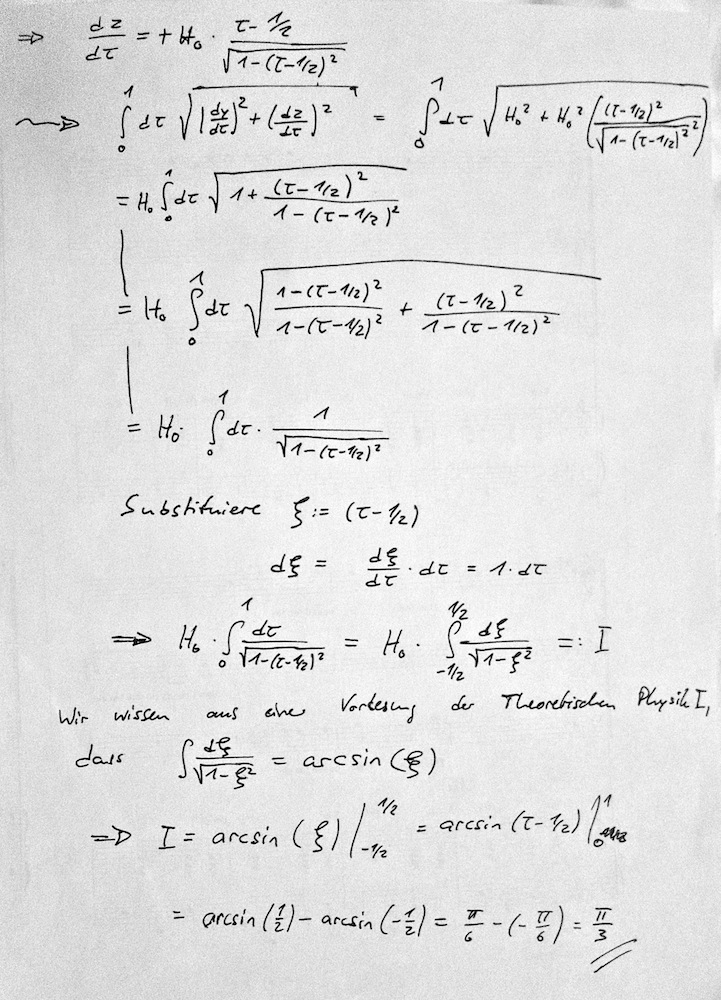 ⇒ dz/dτ = + H₀ · (τ - 1/2)/√(1-(τ-1/2)²)
⇝ ∫₀¹ dτ √((dy/dτ)² + (dz/dτ)²) = ∫₀¹ dτ √(H₀² + H₀² ((τ-1/2)²/√(1-(τ-1/2)²)²))
= H₀ ∫₀¹ dτ √(1 + (τ-1/2)²/(1-(τ-1/2)²))
= H₀ ∫₀¹ dτ √((1-(τ-1/2)²)/(1-(τ-1/2)²) + (τ-1/2)²/(1-(τ-1/2)²))
= H₀ · ∫₀¹ dτ · 1/√(1-(τ-1/2)²)
Substituiere ξ := (τ-1/2)
dξ = dξ/dτ · dτ = 1 · dτ
⇒ H₀ · ∫₀¹ dτ/√(1-(τ-1/2)²) = H₀ · ∫₋₁/₂^1/2 dξ/√(1-ξ²) =: I
Wir wissen aus einer Vorlesung der Theoretischen Physik I,
dass ∫ dξ/√(1-ξ²) = arcsin(ξ)
⇒ I = arcsin(ξ) |₋₁/₂^1/2 = arcsin(τ-1/2) |₀¹
= arcsin(1/2) - arcsin(-1/2) = π/6 - (-π/6) = π/3